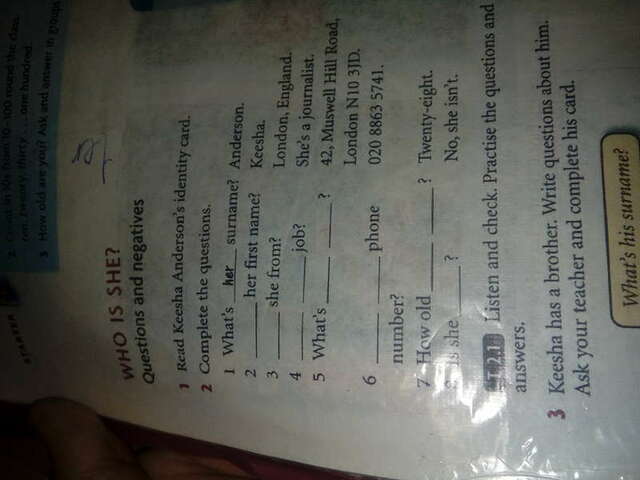 STARTER
2 Count in 10s from 10–100 round the class.
ten, twenty, thirty ... one hundred
3 How old are you? Ask and answer in groups
her
WHO IS SHE?
Questions and negatives
1 Read Keesha Anderson's identity card.
2 Complete the questions.
1 What's her surname? Anderson.
2 ______ her first name? Keesha.
3 ______ she from? London, England.
4 ______ ______ job? She's a journalist.
5 What's ______ ______ ? 42, Muswell Hill Road,
London N10 3JD.
6 ______ ______ phone 020 8863 5741.
number?
7 How old ______ ______ ? Twenty-eight.
8 Is she ______ ? No, she isn't.
T 2.1 Listen and check. Practise the questions and
answers.
3 Keesha has a brother. Write questions about him.
Ask your teacher and complete his card.
What's his surname?